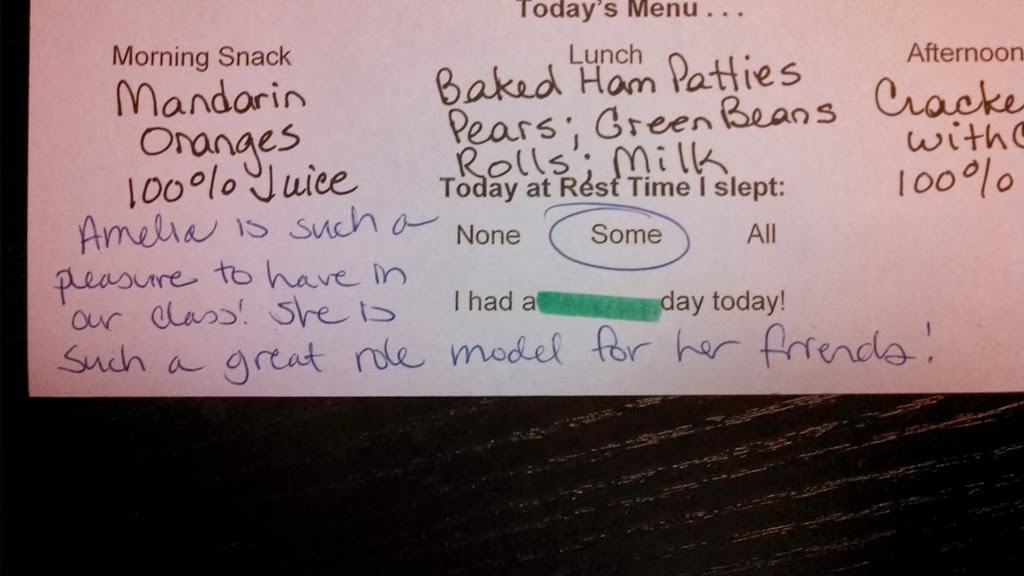 Today's Menu . . .
Morning Snack
Mandarin
Oranges
100% Juice
Lunch
Baked Ham Patties
Pears; Green Beans
Rolls; Milk
Afternoon
Cracke
with
100%
Today at Rest Time I slept:
None Some All
I had a day today!
Amelia is such a
pleasure to have in
our class! She is
such a great role model for her friends!